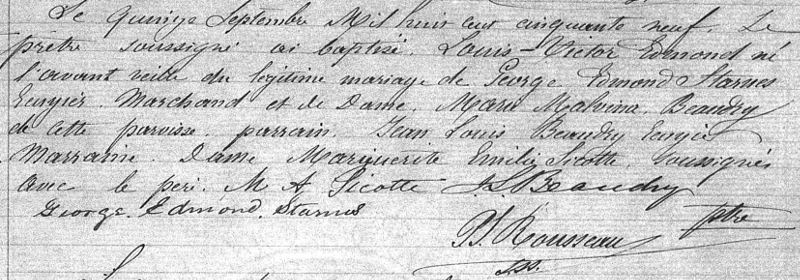 Le quinze Septembre Mil huit cent cinquante neuf. Le
prêtre soussigné ai baptisé. Louis-Victor Edmond né
l'avant veille du légitime mariage de George Edmond Starnes
Ecuyier. Marchand et de Dame. Marie Malvina. Beaudry
de cette paroisse. parrain. Jean Louis Beaudry Ecuyier
Marraine. Dame Marguerite Emilie Sicotte soussignés
avec le père. M A Sicotte J L Beaudry
George. Edmond. Starnes
P. Rousseau ptre